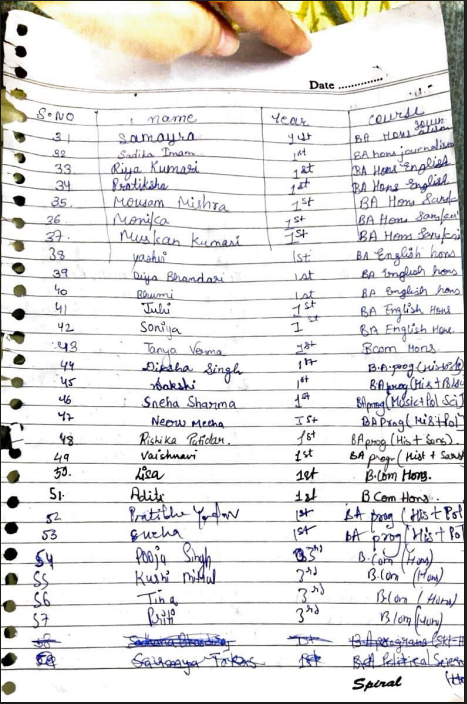 Date ..............
S.NO name Year course
3 Samayra 1st BA Hons Journalism
32 Sadiha Imam 1st BA hons journalism
33. Riya Kumari 1st BA Hons English
34 Pratiksha 1st BA Hons English
35. Mousam Mishra 1st BA Hons
36. Monika 1st BA Hons
37. Muskan Kumari 1st BA Hons
38 yashvi 1st BA English hons
39 Diya Bhandari 1st BA English hons
40 Bhumi 1st BA English hons
41 Juhi 1st BA English Hons
42 Soniya I st BA English Hons
43 Tanya Verma 1st Bcom Hons
44 Diksha Singh 1st B.A. prog (
45 Sakshi 1st BA prog (His +
46 Sneha Sharma 1st BA prog (Music + Pol Sci)
47 Neeru Meena Ist BA Prog (His + Pol)
48 Rishika Patidar. 1st BA prog (His + Sans).
49 Vaishnavi 1st BA prog. (Hist + Sans
50. Lisa 1st B.Com Hons.
51. Aditi 1st B Com Hons.
52 Pratibha Yadav 1st BA prog (His + Pol
53 1st BA prog (His + Pol
54 Pooja Singh 3rd B.Com (Hons)
55 Kushi Mittal 3rd B.Com (Hons)
56 Tina 3rd B.Com (Hons)
57 Priti 3rd B.Com (Hons)
58 1st BA programe (Skt-H
1st BA Political Scien
Spiral